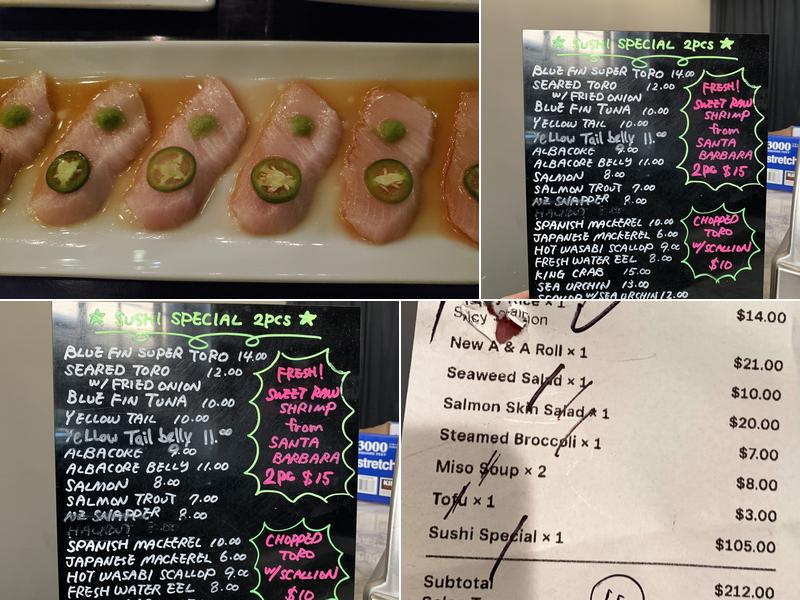 ★ SUSHI SPECIAL 2PCS ★
BLUE FIN SUPER TORO 14.00
SEARED TORO 12.00
W/ FRIED ONION
BLUE FIN TUNA 10.00
YELLOW TAIL 10.00
Yellow Tail belly 11.00
ALBACORE 9.00
ALBACORE BELLY 11.00
SALMON 8.00
SALMON TROUT 7.00
NZ SNAPPER 8.00
HALIBUT
SPANISH MACKEREL 10.00
JAPANESE MACKEREL 6.00
HOT WASABI SCALLOP 9.00
FRESH WATER EEL 8.00
KING CRAB 15.00
SEA URCHIN 13.00
SCALLOP W/ SEA URCHIN 12.00
FRESH!
SWEET RAW
SHRIMP
from
SANTA
BARBARA
2PC $15
CHOPPED
TORO
W/SCALLION
$10
3000
★ SUSHI SPECIAL 2PCS ★
BLUE FIN SUPER TORO 14.00
SEARED TORO 12.00
W/ FRIED ONION
BLUE FIN TUNA 10.00
YELLOW TAIL 10.00
Yellow Tail belly 11.00
ALBACORE 9.00
ALBACORE BELLY 11.00
SALMON 8.00
SALMON TROUT 7.00
NZ SNAPPER 8.00
HALIBUT
SPANISH MACKEREL 10.00
JAPANESE MACKEREL 6.00
HOT WASABI SCALLOP 9.00
FRESH WATER EEL 8.00
FRESH!
SWEET RAW
SHRIMP
from
SANTA
BARBARA
2PC $15
CHOPPED
TORO
W/SCALLION
$10
3000
stretch
Rice × 1
Spicy Salmon $14.00
New A & A Roll × 1 $21.00
Seaweed Salad × 1 $10.00
Salmon Skin Salad × 1 $20.00
Steamed Broccoli × 1 $7.00
Miso Soup × 2 $8.00
Tofu × 1 $3.00
Sushi Special × 1 $105.00
Subtotal $212.00